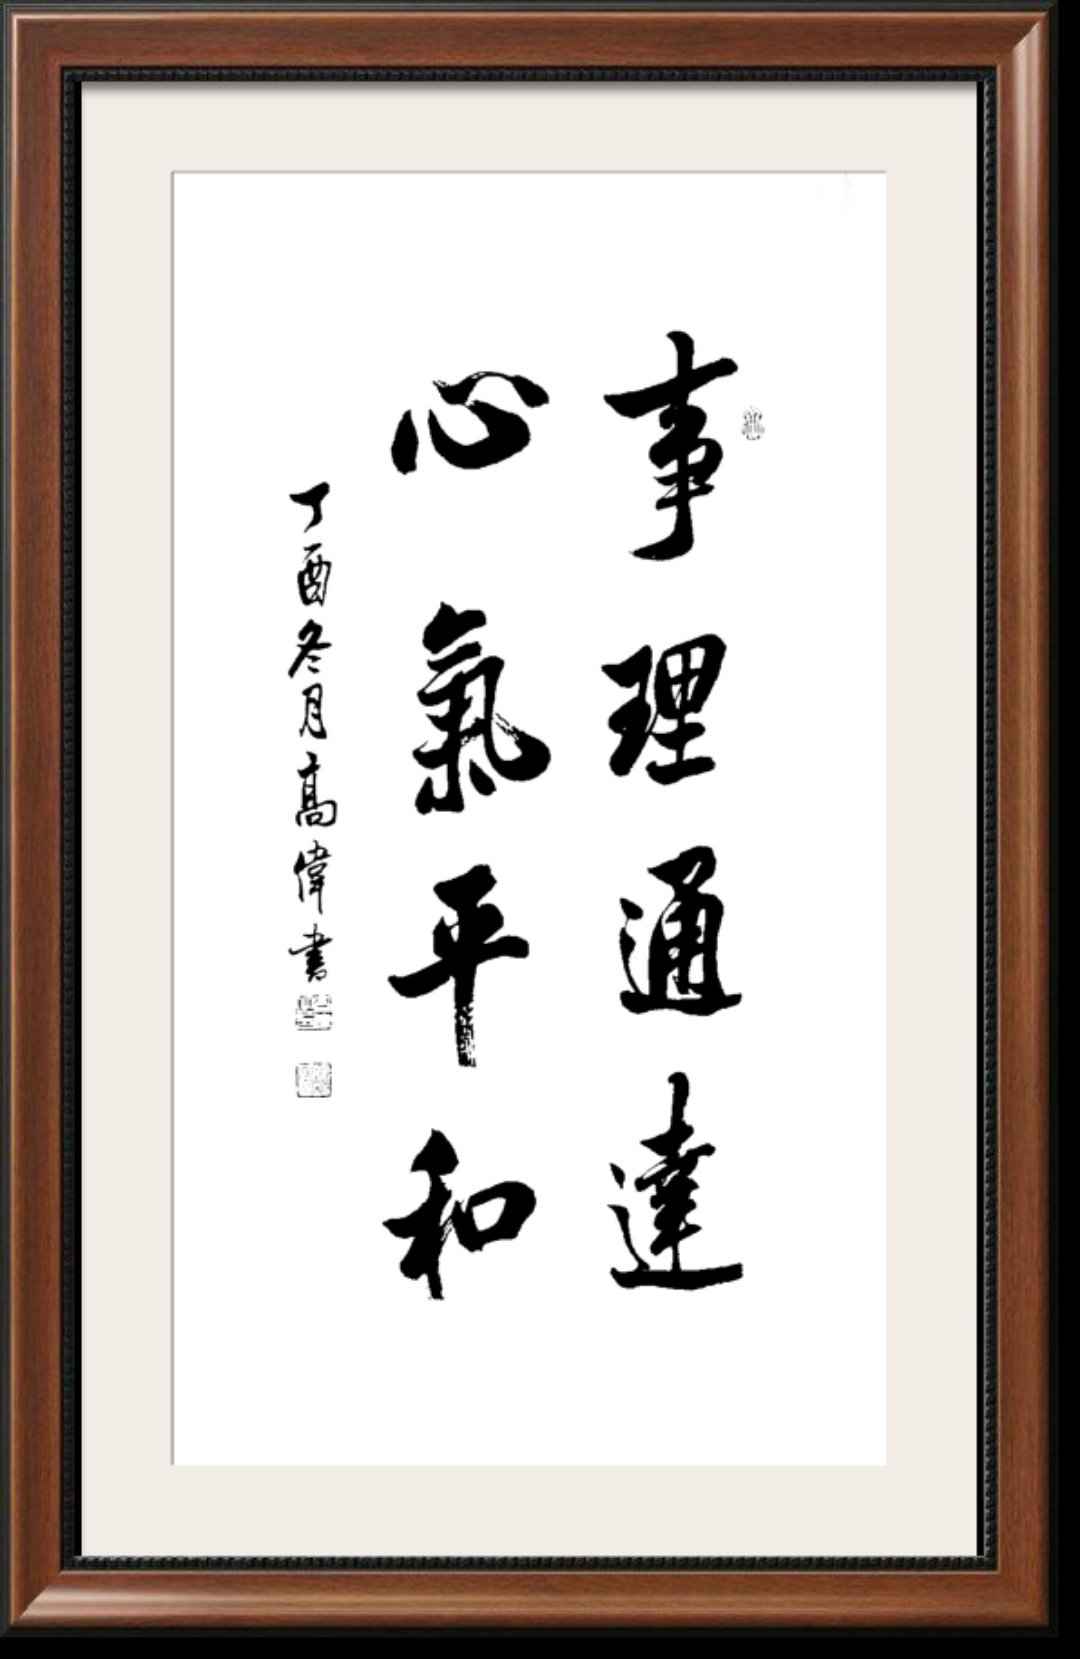 事理通達
心氣平和
丁酉冬月高偉書